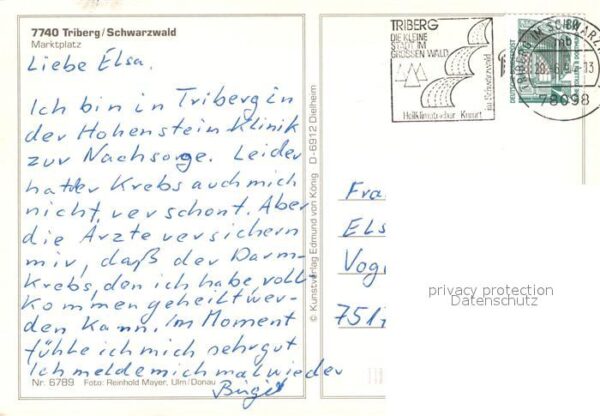 7740 Triberg/Schwarzwald
Marktplatz
Liebe Elsa.
Ich bin in Triberg in
der Hohenstein Klinik
zur Nachsorge. Leider
hat der Krebs auch mich
nicht verschont. Aber
die Ärzte versichern
mir, daß der Darm-
krebs, den ich habe, voll-
kommen geheilt wer-
den kann. Im Moment
fühle ich mich sehr gut
Ich melde mich mal wieder
Birgit
Nr. 6789 Foto: Reinhold Mayer, Ulm/Donau
© Kunstverlag Edmund von König D-6912 Dielheim
TRIBERG
DIE KLEINE
STADT IM
GROSSEN WALD
Heilklimatischer Kurort
im Schwarzwald
TRIBERG IM SCHWARZW
78098
DEUTSCHE BUNDESPOST
Fra
Els
Vog
751
privacy protection
Datenschutz